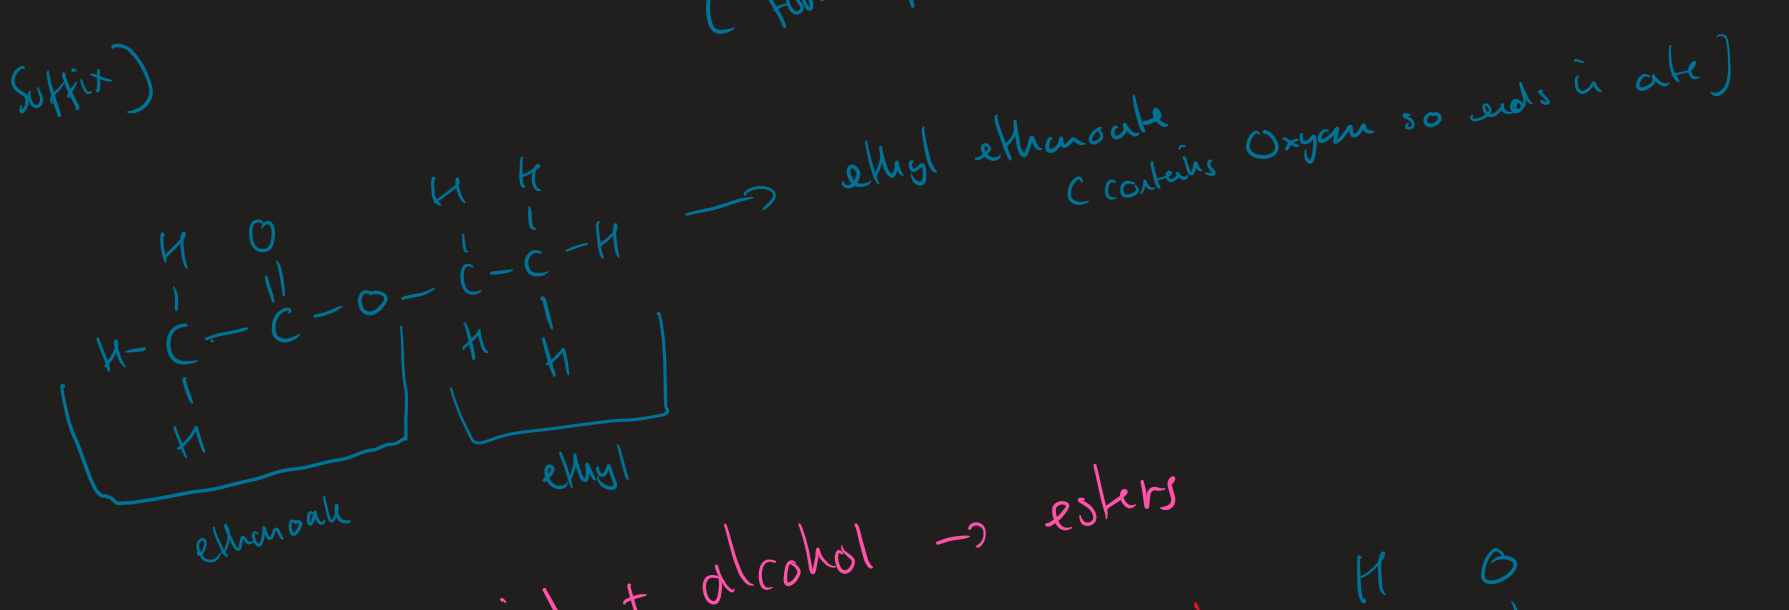 (
suffix)
ethyl ethanoate
(contains Oxygen so ends in ate)
H H
H O
C - C - H
H - C - C - O -
H H
H
ethyl
ethanoate
+ alcohol → esters
H O